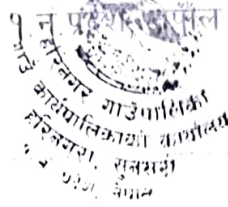 १ नं प्रदेश, नेपाल
हरिनगर गाउँपालिका
गाउँ कार्यपालिकाको कार्यालय
हरिनगरा, सुनसरी
नेपाल